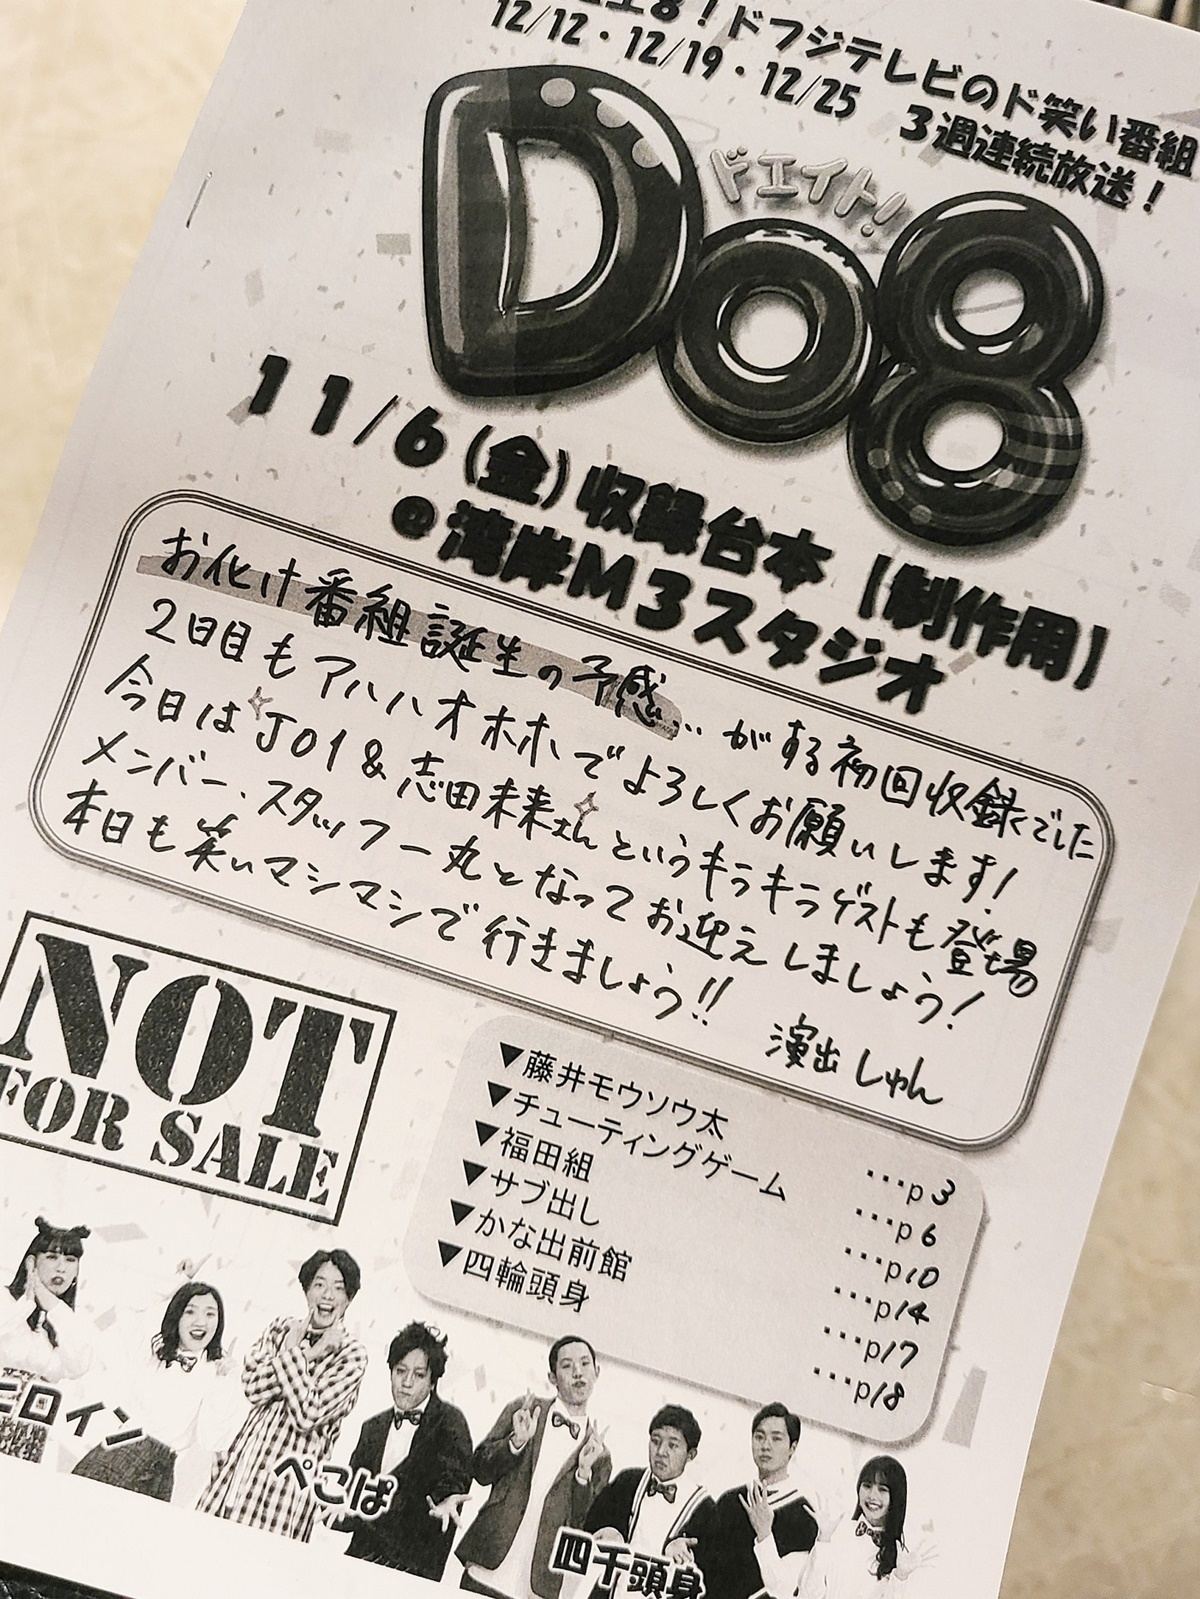 ！ドフジテレビのド笑い番組
12/12・12/19・12/25 3週連続放送！
ドエイト！
Do8
11/6(金)収録台本【制作用】
@湾岸M3スタジオ
お化け番組誕生の予感… がする初回収録でした
2日目もアハハオホホでよろしくお願いします！
今日はJO1&志田未来さんというキラキラゲストも登場
メンバー、スタッフ一丸となってお迎えしましょう！
本日も笑いマシマシで行きましょう!!
演出 しゅん
NOT
FOR SALE
▼藤井モウソウ太 …p3
▼チューティングゲーム …p6
▼福田組 …p10
▼サブ出し …p14
▼かな出前館 …p17
▼四輪頭身 …p18
ヒロイン
ぺこぱ
四千頭身